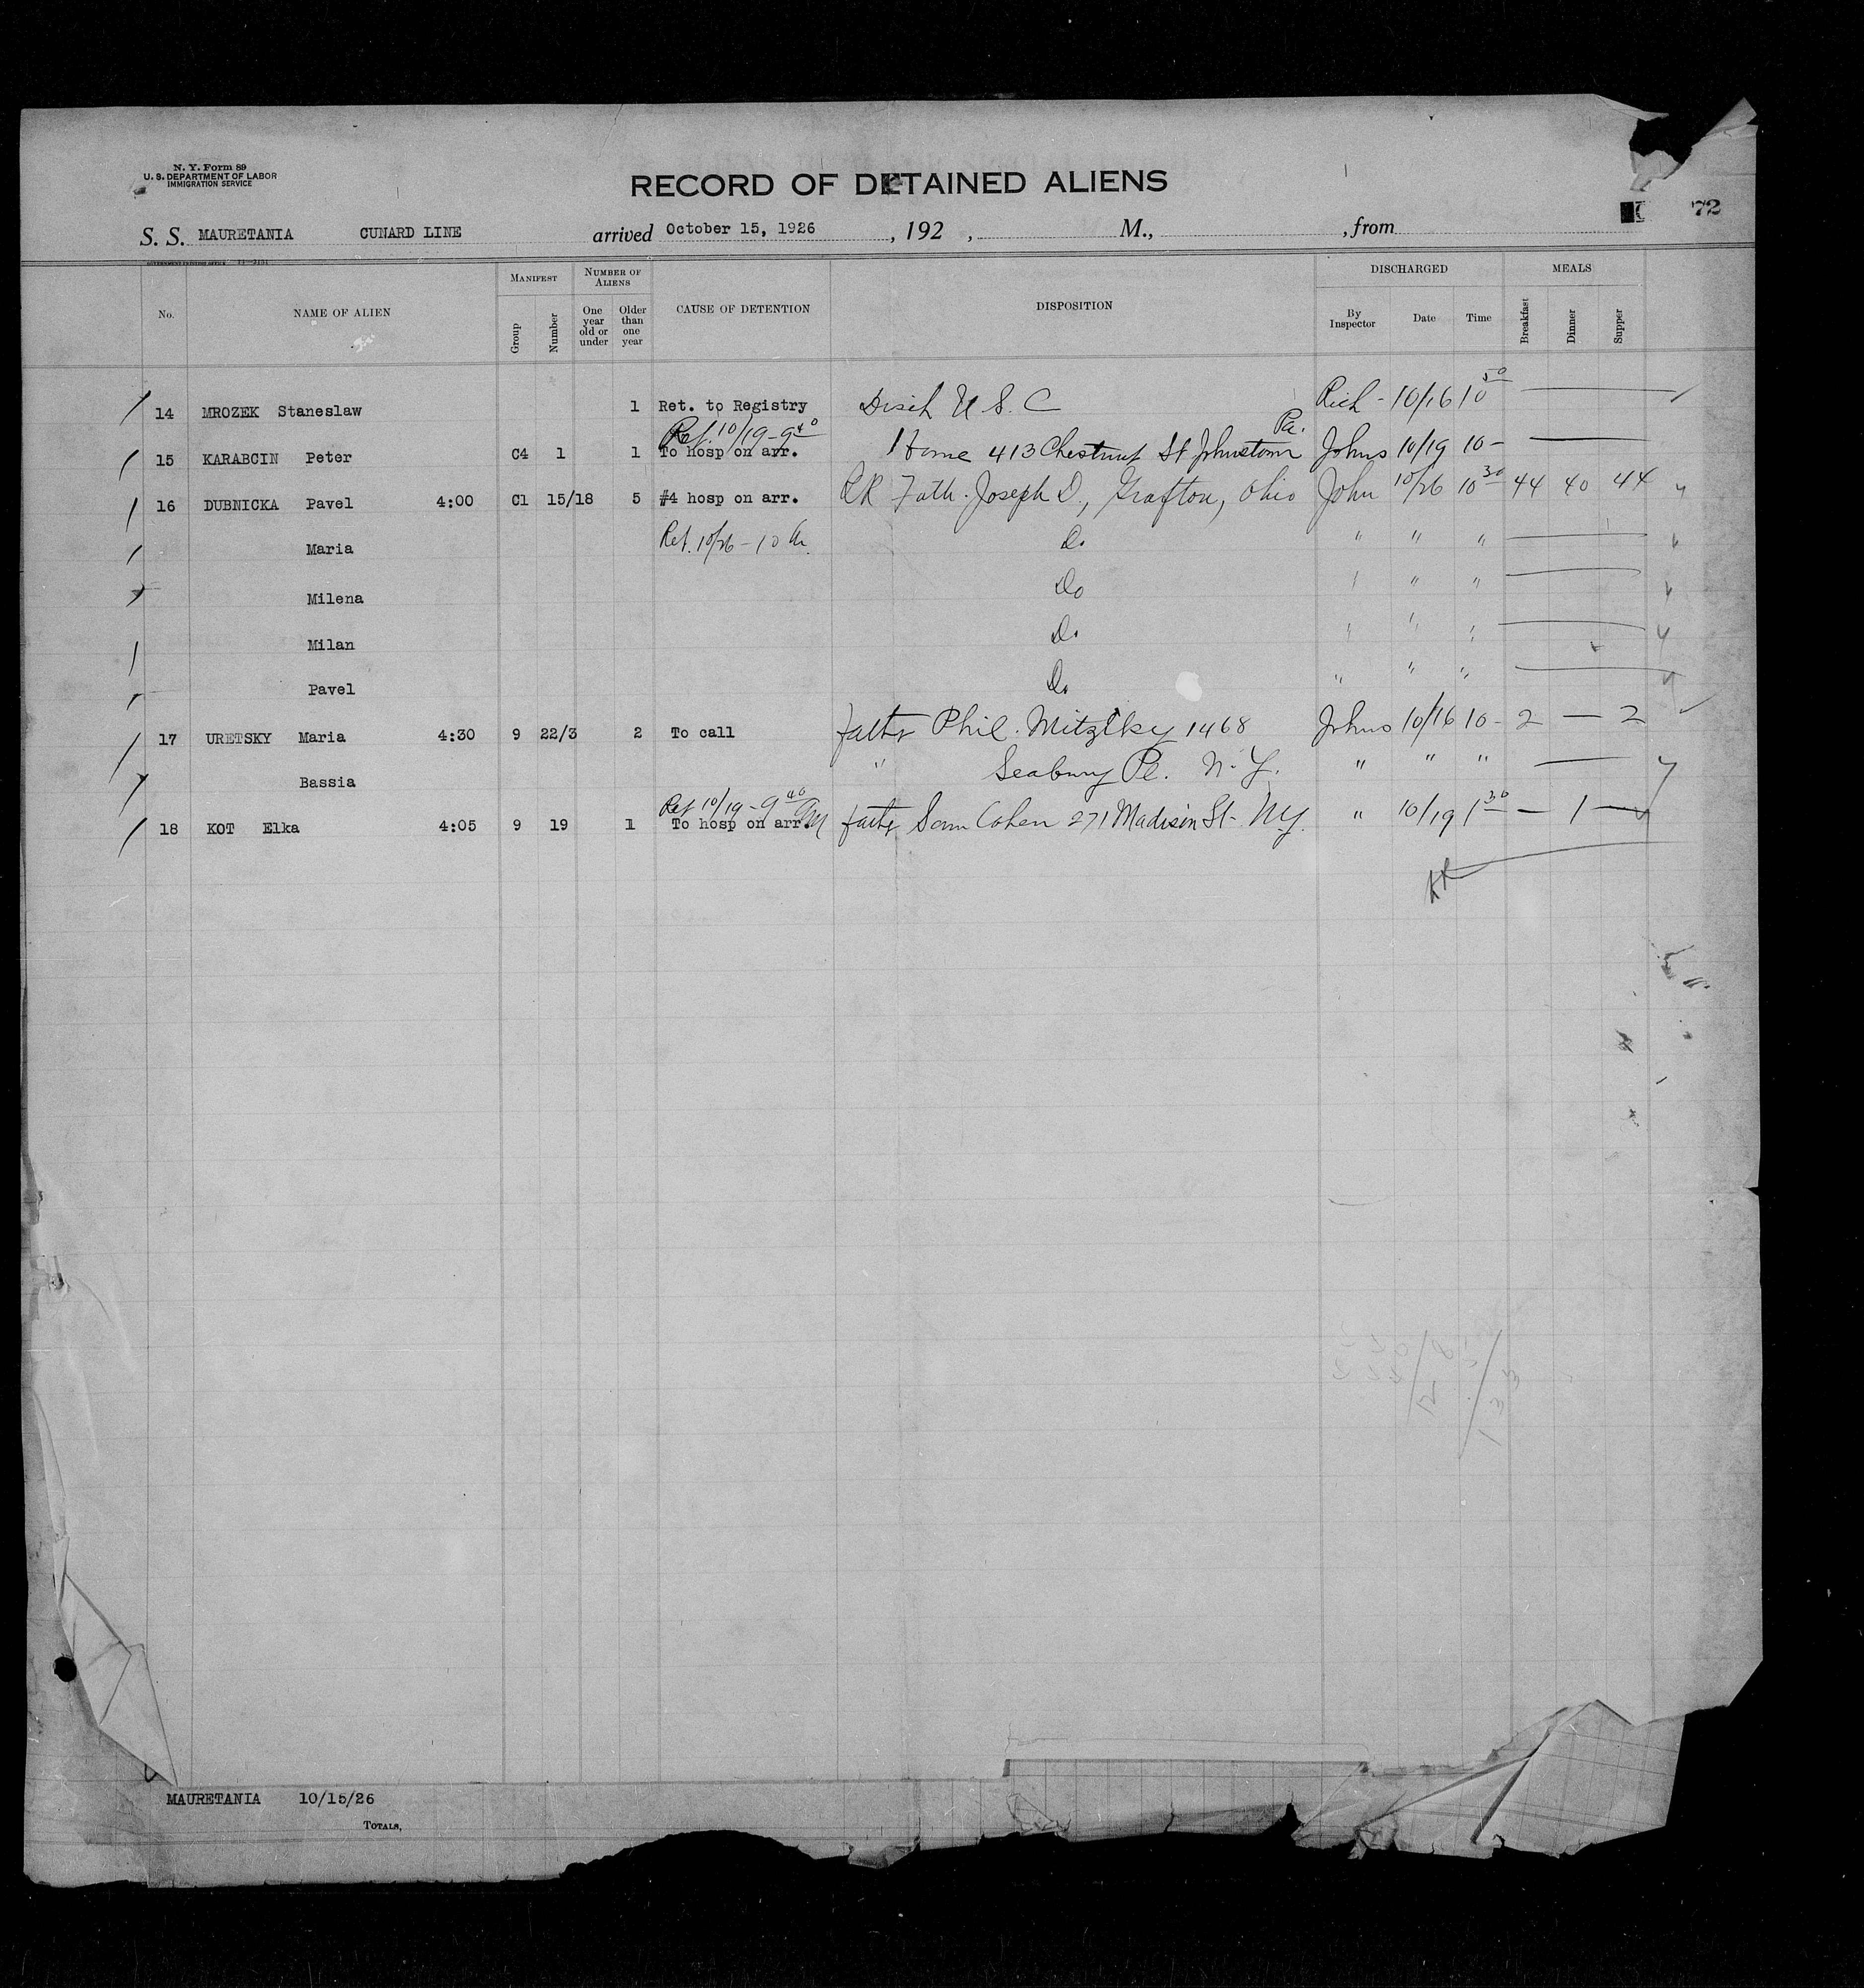 N. Y. Form 89
U. S. DEPARTMENT OF LABOR
IMMIGRATION SERVICE
RECORD OF DETAINED ALIENS
72
S. S. MAURETANIA CUNARD LINE arrived October 15, 1926, 192 , M., , from
GOVERNMENT PRINTING OFFICE
No. NAME OF ALIEN MANIFEST Group Number NUMBER OF ALIENS One year old or under Older than one year CAUSE OF DETENTION DISPOSITION DISCHARGED By Inspector Date Time MEALS Breakfast Dinner Supper
14 MROZEK Staneslaw 1 Ret. to Registry Disch U. S. C Rich - 10/16 10 50
Ret. 10/19 - 9 40 Pa.
15 KARABCIN Peter C4 1 1 To hosp on arr. Home 413 Chestnut St Johnstown Johns 10/19 10 -
16 DUBNICKA Pavel 4:00 C1 15/18 5 #4 hosp on arr. RR Fath. Joseph D., Grafton, Ohio John 10/26 10 30 44 40 44
Maria Ret. 10/26 - 10 Do " " "
Milena Do " " "
Milan Do " " "
Pavel Do " " "
17 URETSKY Maria 4:30 9 22/3 2 To call father Phil. 1468 Johns 10/16 10 - 2 — 2
Bassia " Seabury Pl. N. Y. " " "
Ret 10/19 - 9 40 AM
18 KOT Elka 4:05 9 19 1 To hosp on arr. father Sam Cohen 271 Madison St - N.Y. " 10/19 1 30 — 1 —
MAURETANIA 10/15/26
TOTALS,